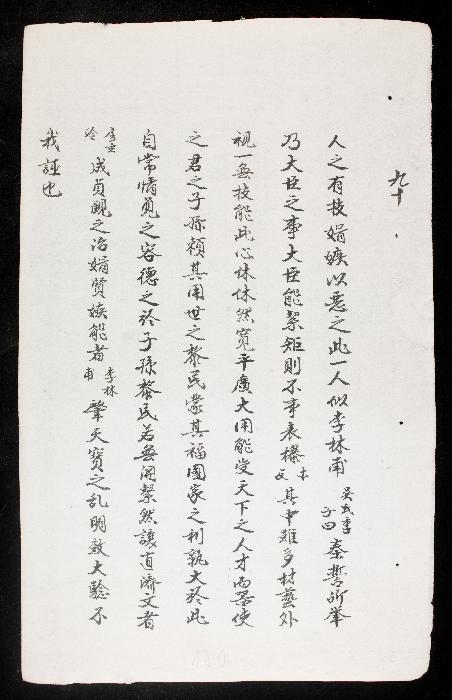 九十
人之有技媢嫉以惡之此一人似李林甫 吳氏季子曰 秦誓所擧
乃大臣之事大臣能絜矩則不事表襮 其中雖多材藝外
視一無技能此心休休然寬平廣大用能受天下之人才而器使
之君之子孫頼其用世之黎民蒙其福國家之利孰大於此
自常情觀之容德之於子孫黎民若無開繫然讓直濟文者
房玄齡 成貞觀之治媢賢嫉能者 李林甫 肇天寶之乱明效大驗不
我誣也